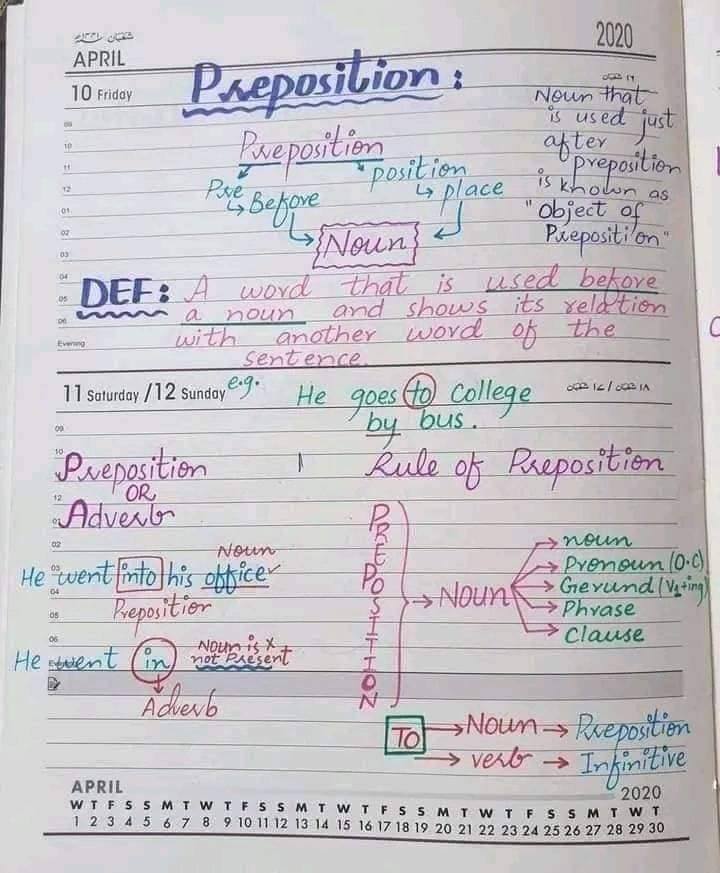 شعبان ۱۴۴۱ھ
APRIL
2020
10 Friday
Preposition:
۱۶ شعبان
Noun that
is used just
after
preposition
is known as
"Object of
Preposition"
Preposition
Pre
position
↳ Before
↳ place
Noun
DEF: A word that is used before
a noun and shows its relation
with another word of the
sentence.
09
10
11
12
01
02
03
04
05
06
Evening
11 Saturday /12 Sunday
e.g. He goes to College
by bus.
۱۷ شعبان / ۱۸ شعبان
Preposition
OR
Adverb
Rule of Preposition
Noun
He went into his office ✓
Preposition
He went in Noun is x
not Present
Adverb
PREPOSITION
→ NOUN
→ noun
→ Pronoun (O.C)
→ Gerund (V1+ing)
→ Phrase
→ Clause
09
10
12
01
02
03
04
05
06
Evening
TO → Noun → Preposition
→ verb → Infinitive
APRIL
2020
W T F S S M T W T F S S M T W T F S S M T W T F S S M T W T
1 2 3 4 5 6 7 8 9 10 11 12 13 14 15 16 17 18 19 20 21 22 23 24 25 26 27 28 29 30